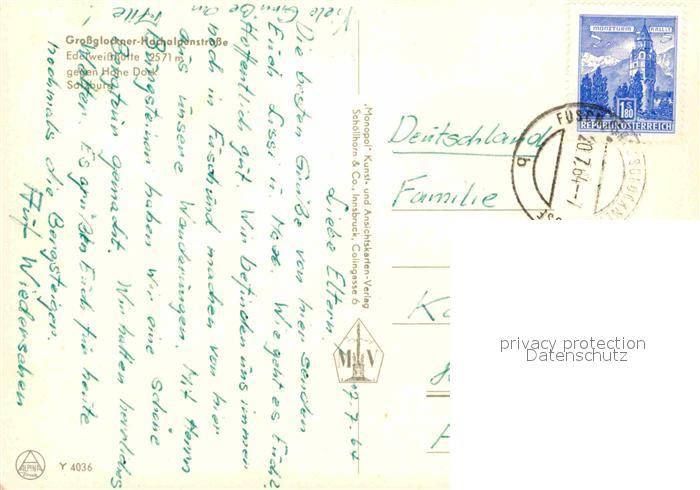 Großglockner-Hochalpenstraße
Edelweißhütte 2571 m
gegen Hohe Dock
Salzburg
19.7.64
Liebe Eltern
Die besten Grüße von hier senden
Euch Lissi u. Wie geht es Euch?
Hoffentlich gut. Wir befinden uns immer
noch in Fusch und machen von hier
aus unsere Wanderungen. Mit Herrn
Bergsteiner haben wir eine schöne
Bergtour gemacht. Wir hatten herrliches
Wetter. Es grüßen Euch für heute
nochmals die Bergsteiger.
Auf Wiedersehen
Viele Grüße an
Alle!
"Monopol" Kunst- und Ansichtskarten-Verlag
Schöllhorn & Co., Innsbruck, Colingasse 6
M V
ALPINA
Druck
Y 4036
MÜNZTURM HALL I.T.
S 1.80
REPUBLIK ÖSTERREICH
20.7.64-7
b
Deutschland
Familie
privacy protection
Datenschutz